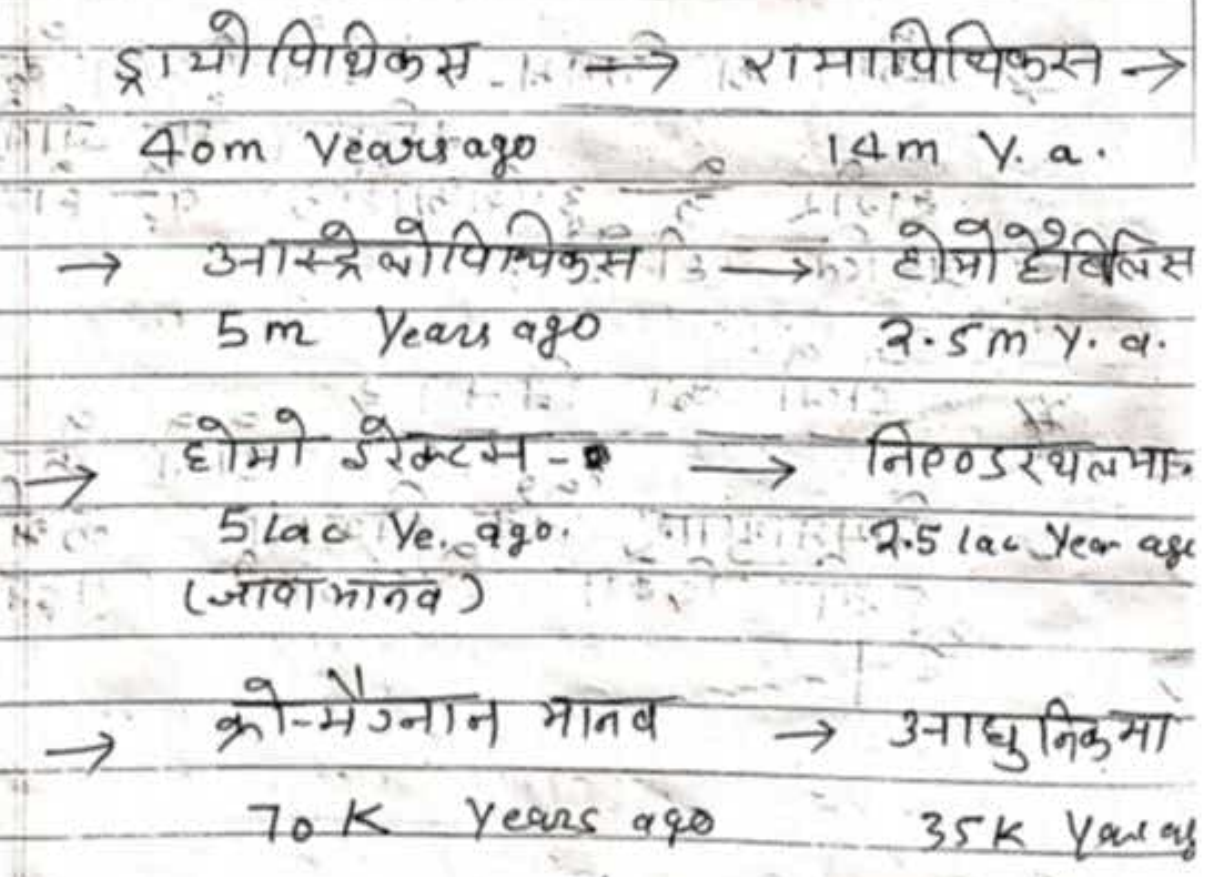 ड्रायोपिथिकस → रामापिथिकस →
40m Years ago 14m Y. a.
→ आस्ट्रेलोपिथिकस → होमो हैबिलिस
5m Years ago 2.5m Y. a.
→ होमो इरेक्टस - → निएण्डरथलमा
5 lac Ye. ago. 2.5 lac Year ago
(जावामानव)
→ क्रो-मैग्नान मानव → आधुनिकमा
70 K Years ago 35K Year ag